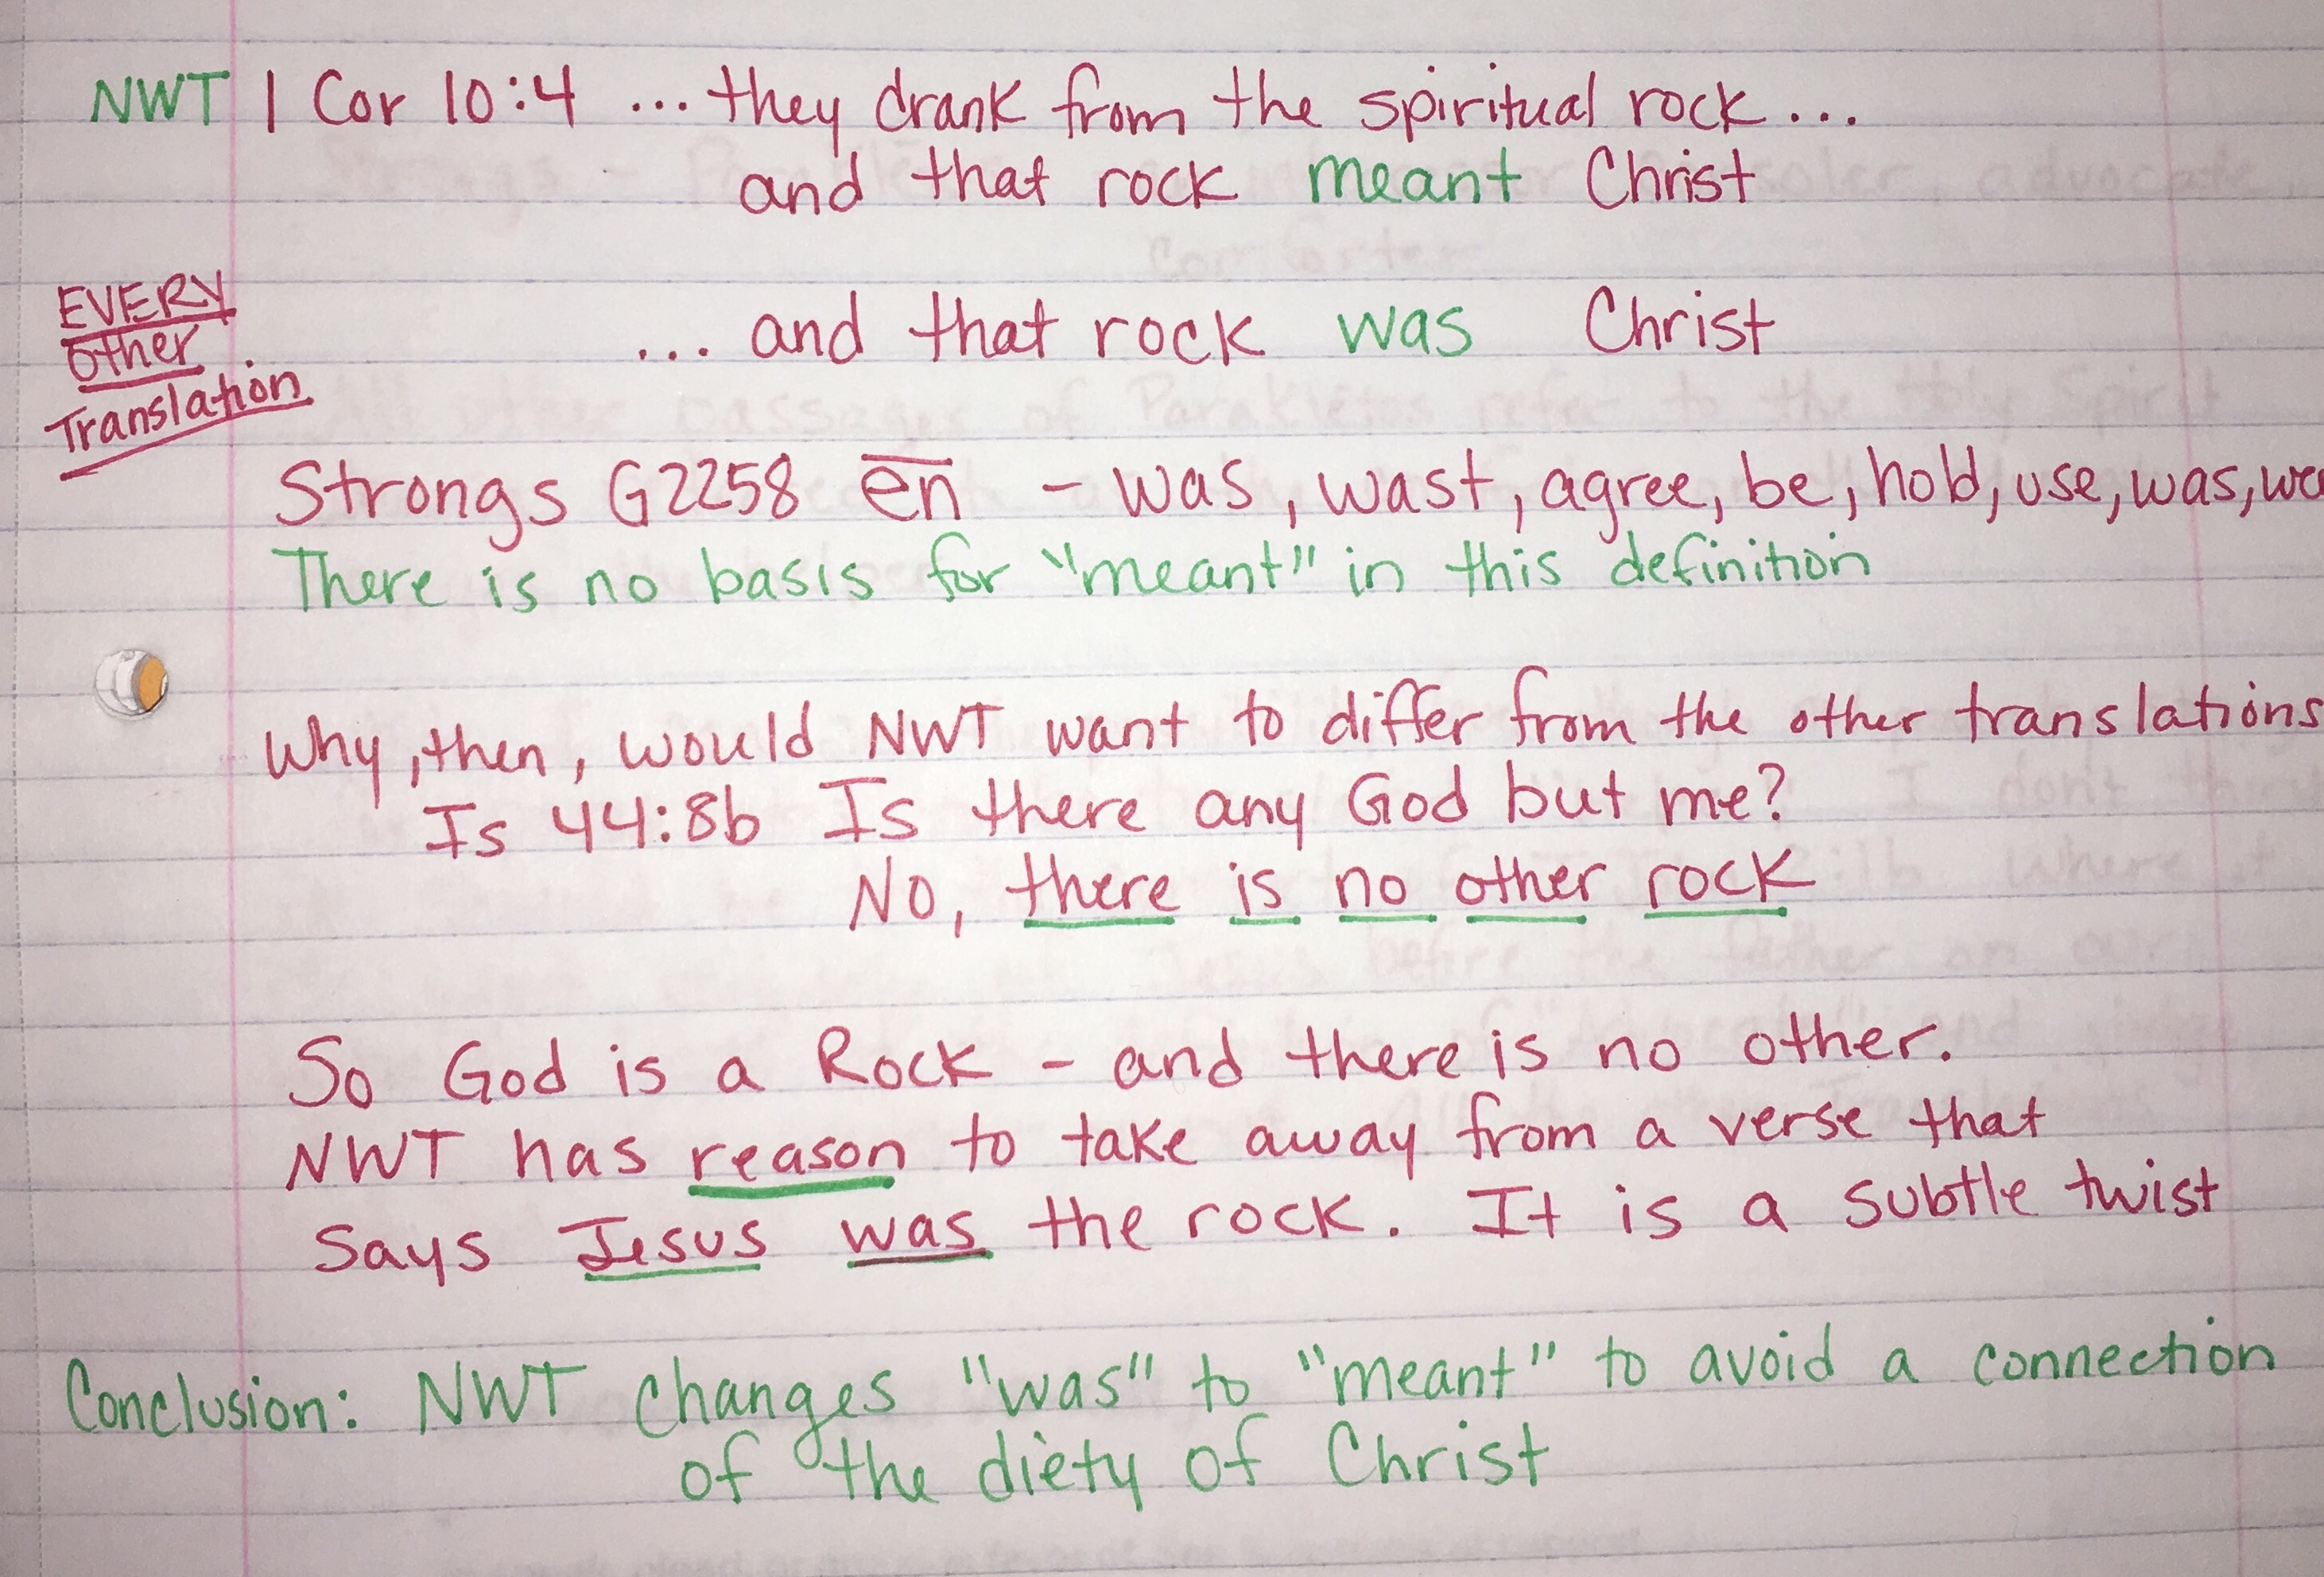 NWT 1 Cor 10:4 ... they drank from the spiritual rock...
and that rock meant Christ
EVERY
other
Translation
... and that rock was Christ
Strongs G2258 ēn - was, wast, agree, be, hold, use, was, we
There is no basis for "meant" in this definition
Why, then, would NWT want to differ from the other translations
Is 44:8b Is there any God but me?
No, there is no other rock
So God is a Rock - and there is no other.
NWT has reason to take away from a verse that
says Jesus was the rock. It is a subtle twist
Conclusion: NWT changes "was" to "meant" to avoid a connection
of the diety of Christ